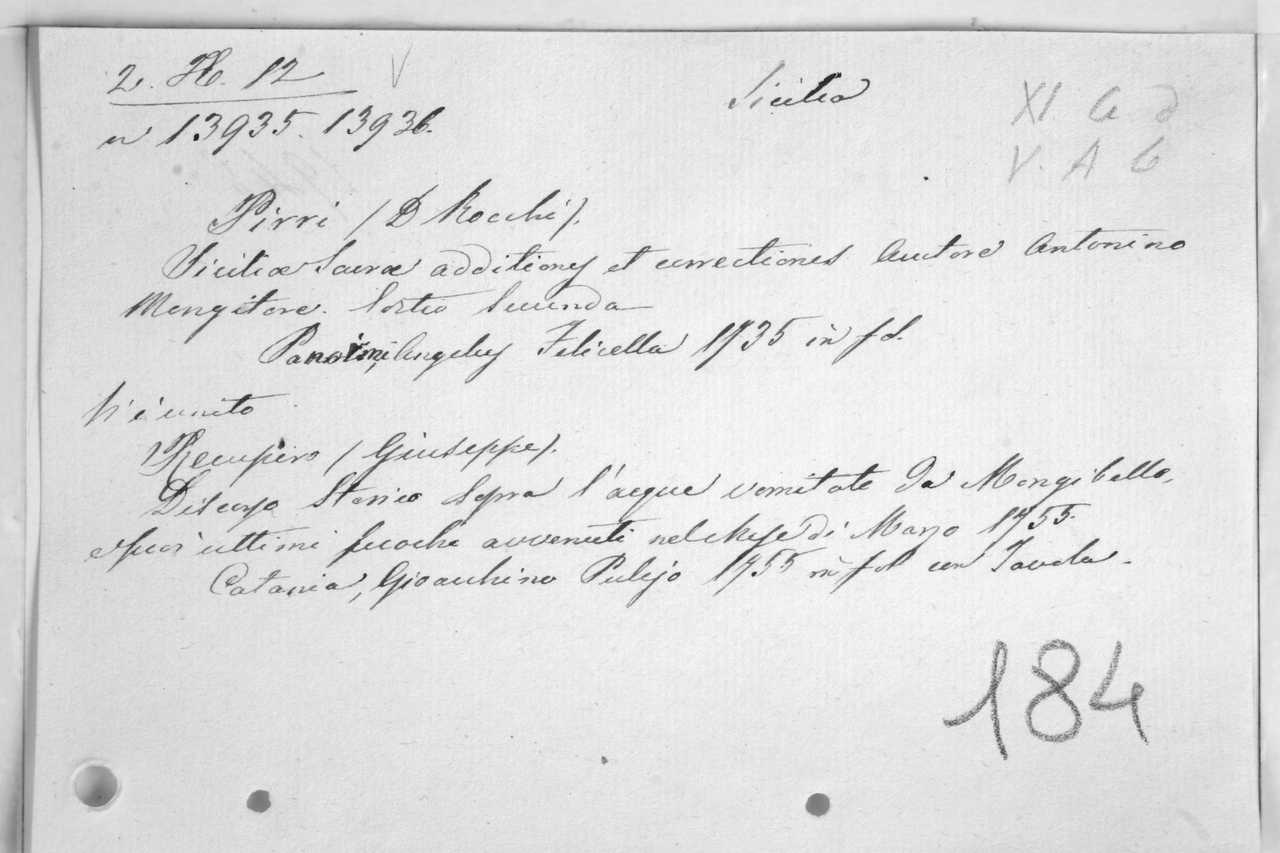 2. H. 12 V
n 13935. 13936.
Sicilia
XI. G d
V. A 6
Pirri (D Rocchi).
Siciliæ Sacræ additiones et correctiones Auctore Antonino
Mongitore. Sectio Secunda
Panormi, Angelus Felicella 1735 in fol.
Vi è unito
Recupero (Giuseppe).
Discorso Storico Sopra l'acque vomitate da Mongibello,
e suoi ultimi fuochi avvenuti nel Mese di Marzo 1755.
Catania, Gioacchino Pulejo 1755 in fol con Tavola.
184